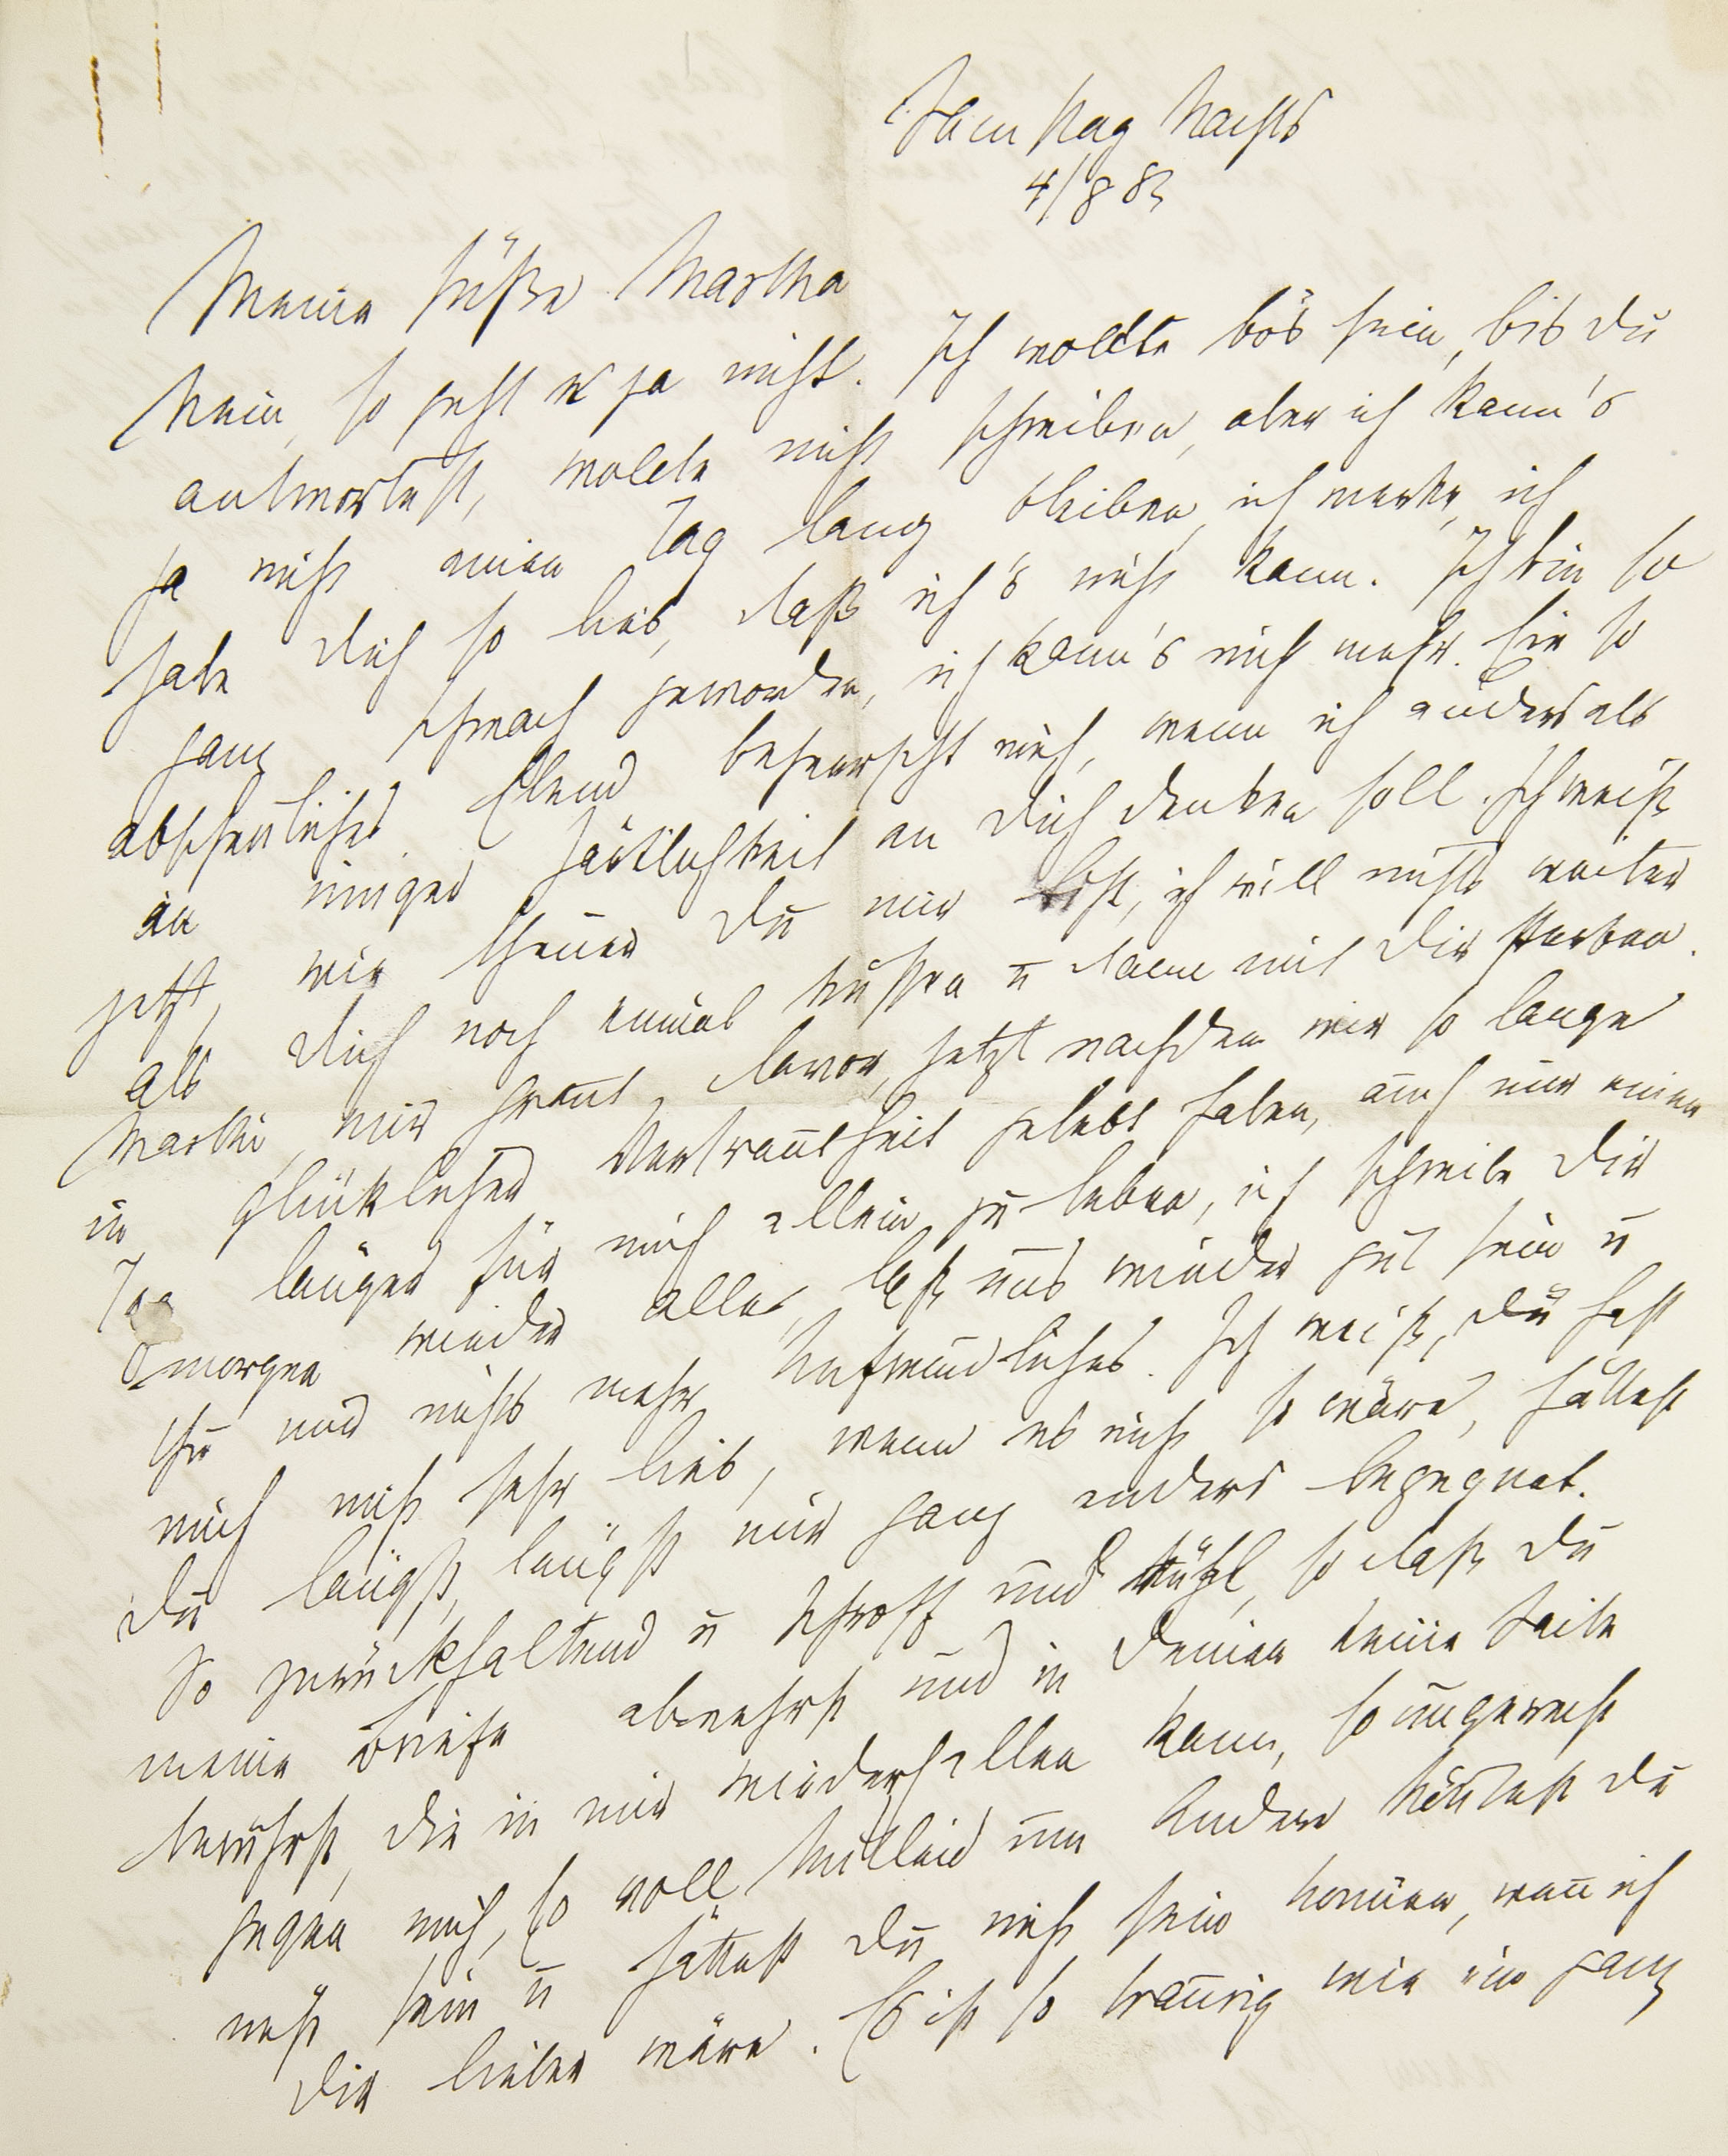 Samstag Nachts
4/8 83
Meine süße Martha
Nein, so geht es ja nicht. Ich wollte bös sein, bis Du
antwortest, wollte nicht schreiben, aber ich kann's
ja nicht einen Tag lang bleiben, ich merke, ich
habe Dich so lieb, daß ich's nicht kann. Ich bin so
ganz schwach geworden, ich kann's nicht mehr. Ein so
abscheuliches Elend beherrscht mich, wenn ich anders als
in inniger Zärtlichkeit an Dich denken soll. Ich weiß
jetzt, wie theuer Du mir bist, ich will nichts weiter
als Dich noch einmal küssen u dann mit Dir sterben.
Marthi, mir graut davor, jetzt nachdem wir so lange
in glücklicher Vertrautheit gelebt haben, auch nur einen
Tag länger für mich allein zu leben, ich schreibe Dir
morgen wieder alles, laß uns wieder gut sein u
thu und nichts mehr Unfreundliches. Ich weiß, Du hast
mich nicht sehr lieb, wenn es nicht so wäre, hättest
Du längst, längst mir ganz anders begegnet.
So zurückhaltend u schroff und kühl, so daß Du
meine Briefe abwehrst und in Deinen keine Saite
berührst, die in mir wiederhallen kann, so ungerecht
gegen mich, so voll Mitleid um Andere könntest Du
nicht sein u hättest Du nicht sein können, wenn ich
Dir lieber wäre. Es ist so traurig wie ein ganz